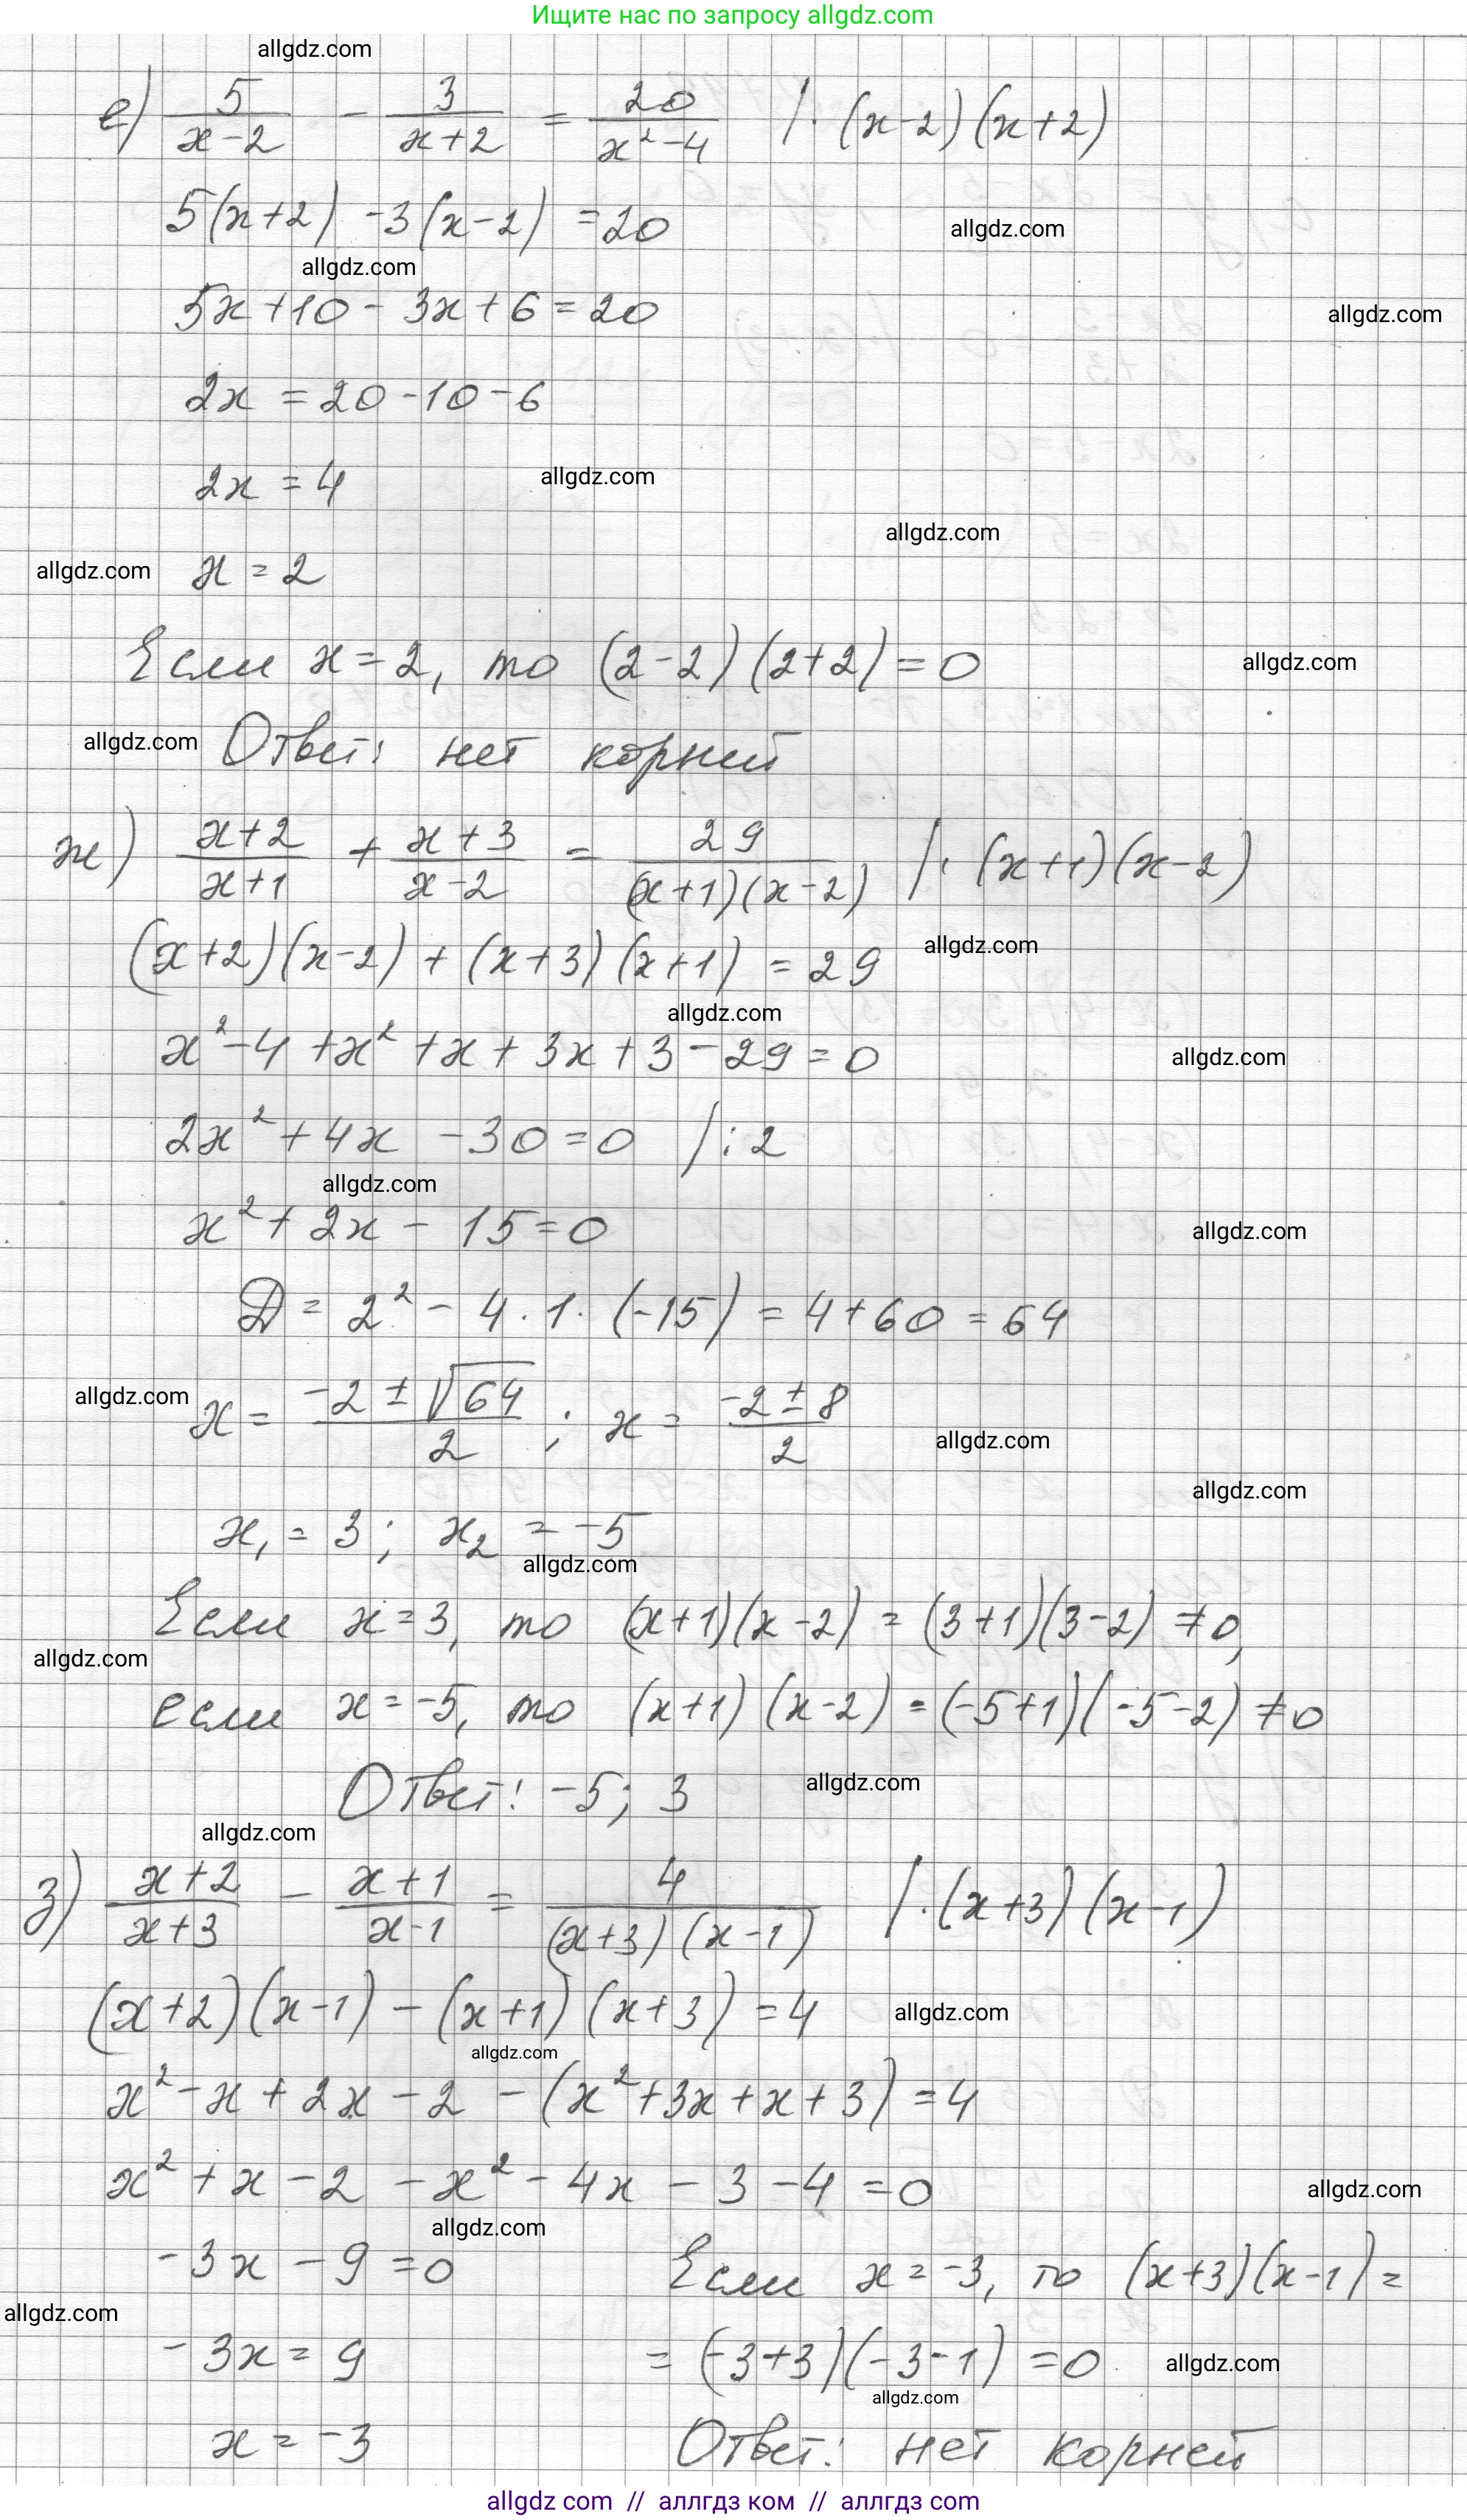 Ищите нас по запросу allgdz.com
allgdz.com
е) 5/(x-2) - 3/(x+2) = 20/(x²-4) /· (x-2)(x+2)
5(x+2) -3(x-2) =20
allgdz.com
allgdz.com
5x+10 - 3x+6=20
allgdz.com
2x =20-10-6
2x =4
allgdz.com
allgdz.com
allgdz.com
x =2
Если x=2, то (2-2)(2+2)=0
allgdz.com
allgdz.com
Ответ: нет корней
ж) (x+2)/(x+1) + (x+3)/(x-2) = 29/((x+1)(x-2)) /· (x+1)(x-2)
(x+2)(x-2) + (x+3)(x+1) =29
allgdz.com
allgdz.com
x²-4 +x² +x+ 3x+3-29=0
allgdz.com
2x²+4x -30=0 /:2
allgdz.com
x²+ 2x- 15=0
allgdz.com
D= 2²- 4·1· (-15) =4+60=64
allgdz.com
x= (-2±√64)/2 ; x= (-2±8)/2
allgdz.com
allgdz.com
x₁= 3; x₂ = -5
allgdz.com
Если x=3, то (x+1)(x-2) = (3+1)(3-2) ≠0,
allgdz.com
если x=-5, то (x+1)(x-2) =(-5+1)(-5-2) ≠0
Ответ: -5; 3
allgdz.com
allgdz.com
з) (x+2)/(x+3) - (x+1)/(x-1) = 4/((x+3)(x-1)) /·(x+3)(x-1)
(x+2)(x-1) - (x+1)(x+3) =4
allgdz.com
allgdz.com
x²-x+2x-2 -(x²+3x+x+3) =4
x²+x-2 -x²-4x -3-4=0
allgdz.com
allgdz.com
-3x -9=0
Если x=-3, то (x+3)(x-1)=
allgdz.com
-3x= 9
= (-3+3)(-3-1) =0
allgdz.com
allgdz.com
x= -3
Ответ: нет корней
allgdz com // аллгдз ком // аллгдз com